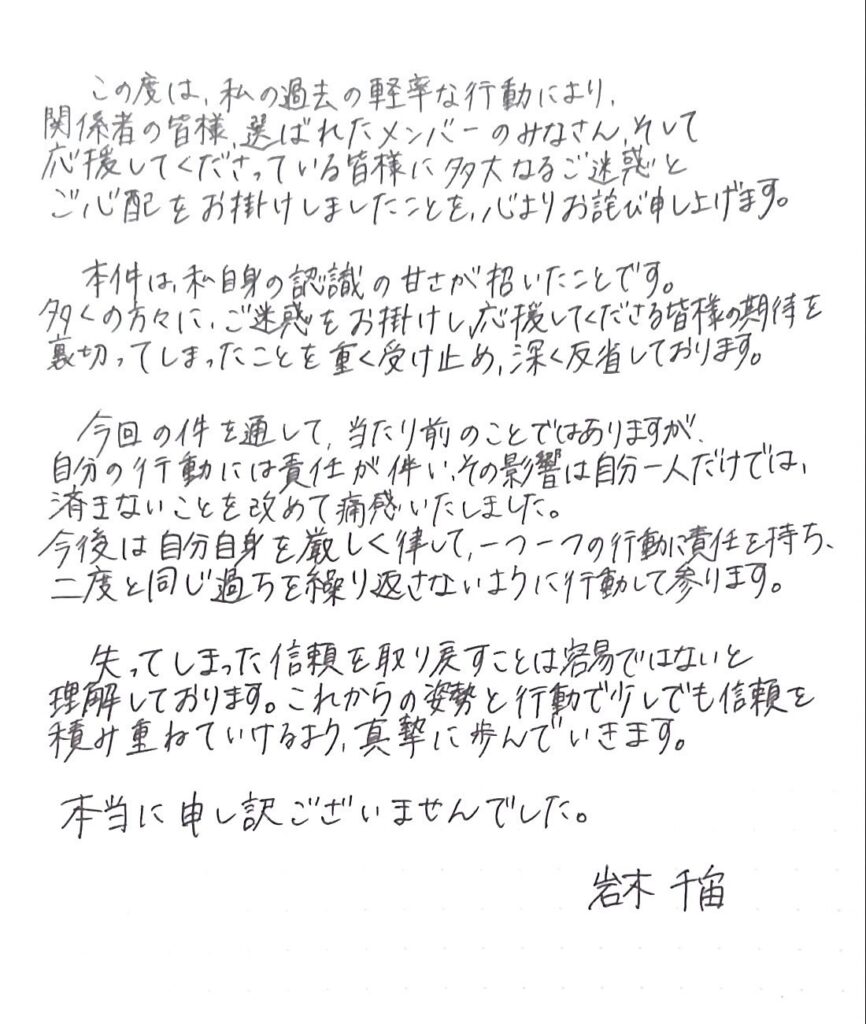 この度は、私の過去の軽率な行動により、
関係者の皆様、選ばれたメンバーのみなさん、そして
応援してくださっている皆様に多大なるご迷惑と
ご心配をお掛けしましたことを、心よりお詫び申し上げます。
本件は、私自身の認識の甘さが招いたことです。
多くの方々に、ご迷惑をお掛けし、応援してくださる皆様の期待を
裏切ってしまったことを重く受け止め、深く反省しております。
今回の件を通して、当たり前のことではありますが、
自分の行動には責任が伴い、その影響は自分一人だけでは、
済まないことを改めて痛感いたしました。
今後は自分自身を厳しく律して、一つ一つの行動に責任を持ち、
二度と同じ過ちを繰り返さないように行動して参ります。
失ってしまった信頼を取り戻すことは容易ではないと
理解しております。これからの姿勢と行動で少しでも信頼を
積み重ねていけるよう、真摯に歩んでいきます。
本当に申し訳ございませんでした。
岩木 千宙